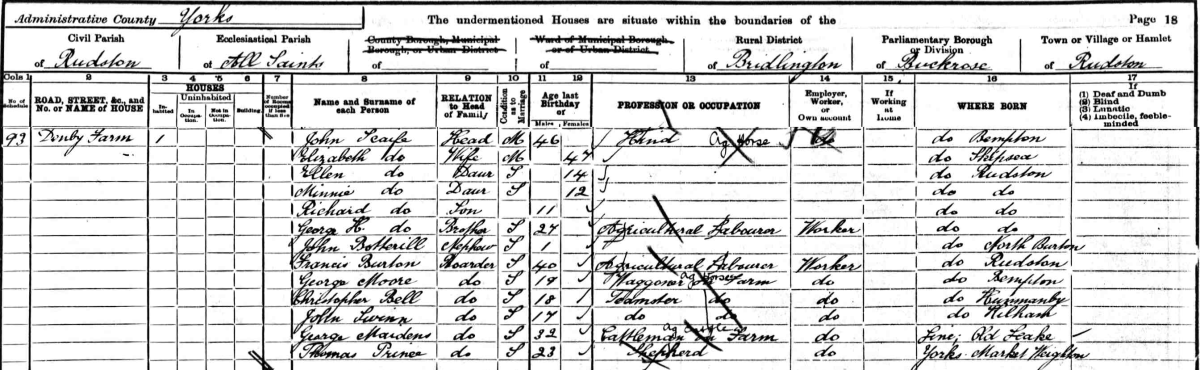 Administrative County Yorks
The undermentioned Houses are situate within the boundaries of the
Page 18
Civil Parish of Rudston
Ecclesiastical Parish of All Saints
County Borough, Municipal Borough, or Urban District of
Ward of Municipal Borough or of Urban District, of
Rural District of Bridlington
Parliamentary Borough or Division of Buckrose
Town or Village or Hamlet of Rudston
Cols 1 2 3 4 5 6 7 8 9 10 11 12 13 14 15 16 17
No. of Schedule
ROAD, STREET, &c., and No. or NAME of HOUSE
HOUSES
Inhabited
Uninhabited
In Occupation.
Not in Occupation.
Building
Number of Rooms occupied if less than five
Name and Surname of each Person
RELATION to Head of Family
Condition as to Marriage
Age last Birthday of
Males Females
PROFESSION OR OCCUPATION
Employer, Worker, or Own account
If Working at Home
WHERE BORN
If
(1) Deaf and Dumb
(2) Blind
(3) Lunatic
(4) Imbecile, feeble-minded
93 Denby Farm 1 John Scaife Head M 46 Hind Ag Horse do Bempton
Elizabeth do Wife M 47 do Skipsea
Ellen do Daur S 14 do Rudston
Minnie do Daur S 12 do do
Richard do Son 11 do do
George H. do Brother S 27 Agricultural Labourer Worker do do
John Botterill Nephew S 1 do North Burton
Francis Burton Boarder S 40 Agricultural Labourer Worker do Rudston
George Moore do S 19 Waggoner on Farm Ag Horse do do Bempton
Christopher Bell do S 18 Teamster do do do Hunmanby
John Swinn do S 17 do do do do Kilham
George Maidens do S 32 Cattleman on Farm Ag Cattle do Linc; Old Leake
Thomas Prince do S 23 Shepherd do Yorks Market Weighton